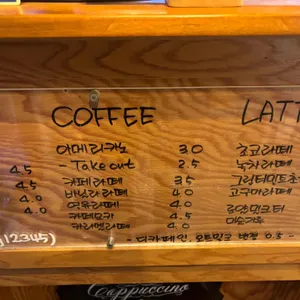 COFFEE
아메리카노 3.0
- Take out 2.5
카페라떼 3.5
바닐라라떼 4.0
연유라떼 4.0
카페모카 4.5
카라멜라떼 4.0
LATT
초코라떼
녹차라떼
고구마라떼
4.5
4.5
4.0
4.0
12345)
- 디카페인, 오트밀크 변경 0.5 -
Cappuccino